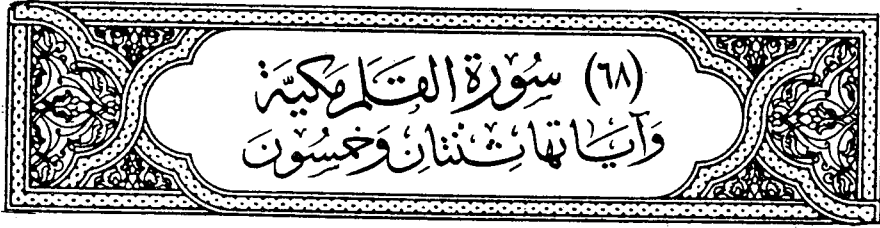 (٦٨) سُورَة القَلَمِ مَكيَّة
وَآيَاتهَا ثِنْتَان وَخَمْسُونَ